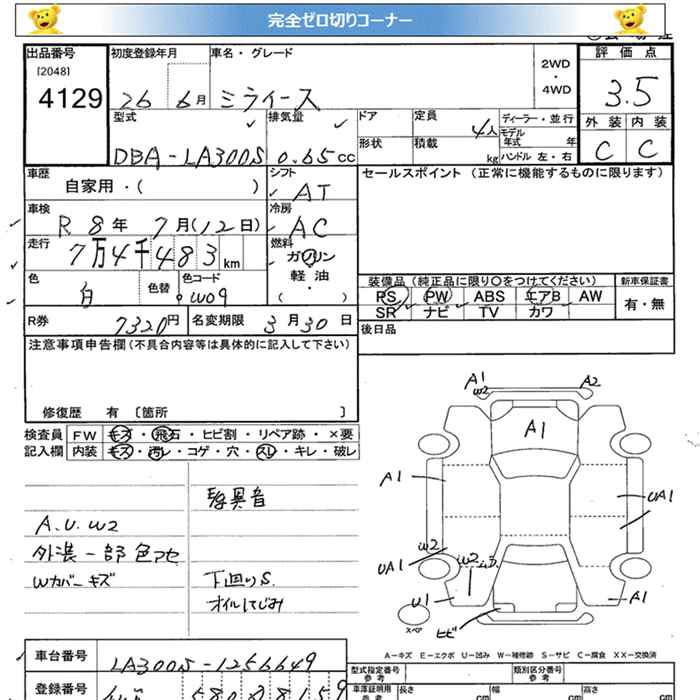 完全ゼロ切りコーナー
出品番号 初度登録年月 車名・グレード 2WD・4WD 評価点
[2048]
4129 26 6月 ミライース 3.5
型式 排気量 ドア 定員 ディーラー・並行 外装 内装
DBA-LA300S 0.65cc 形状 積載 4人 kg モデル年式 年 ハンドル 左・右 C C
車歴 シフト セールスポイント (正常に機能するものに限ります)
自家用・( ) AT
車検 冷房
R 8年 7月(12日) AC
走行 燃料
7万4千483km ガソリン
色 色替 色コード 軽・油
白 W09 ( )
装備品 (純正品に限り○をつけてください) 新車保証書
PS PW ABS エアB AW 有・無
SR ナビ TV カワ
R券 7320円 名変期限 3月30日 後日品
注意事項申告欄(不具合内容等は具体的に記入して下さい)
修復歴 有 〔箇所 〕
検査員 FW キズ・飛石・ヒビ割・リペア跡・×要
記入欄 内装 キズ・汚レ・コゲ・穴・スレ・キレ・破レ
異音
A.U.W2
外装一部色アセ
Wカバーキズ
下回りS.
オイルにじみ
A1
W2
A2
A1
A1
UA1
W2
UA1
W2
U1
A1
ヒビ
スペア
A-キズ E-エクボ U-凹み W-補修跡 S-サビ C-腐食 XX-交換済
車台番号 LA300S-1256649
型式指定番号 参考 類別区分番号 参考
登録番号 580
車庫証明用 参考 長さ cm 幅 cm 高さ cm